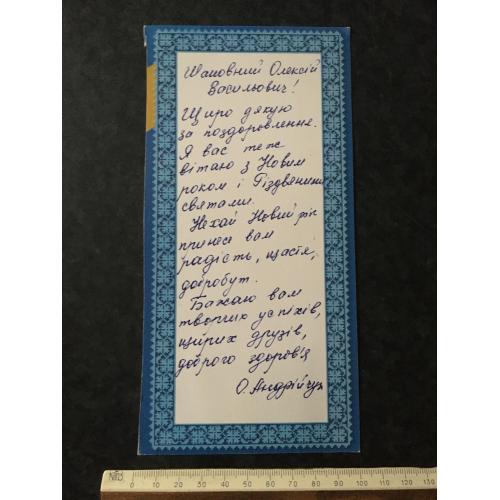 Шановний Олексій
Васильович!
Щиро дякую
за поздоровлення.
Я вас теж
вітаю з Новим
роком і Різдвяними
святами.
Нехай Новий рік
принесе вам
радість, щастя,
добробут.
Бажаю вам
творчих успіхів,
щирих друзів,
доброго здоров'я
О. Андрійчук
0 10 20 30 40 50 60 70 80 90 100 110 120 130